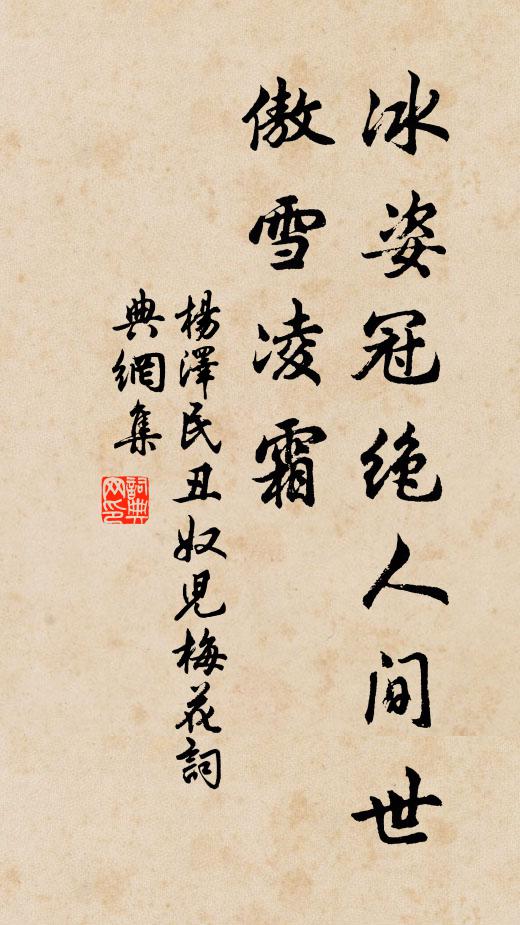 冰姿冠绝人间世
傲雪凌霜
楊澤民丑奴児梅花詞
典網集
詞典網印